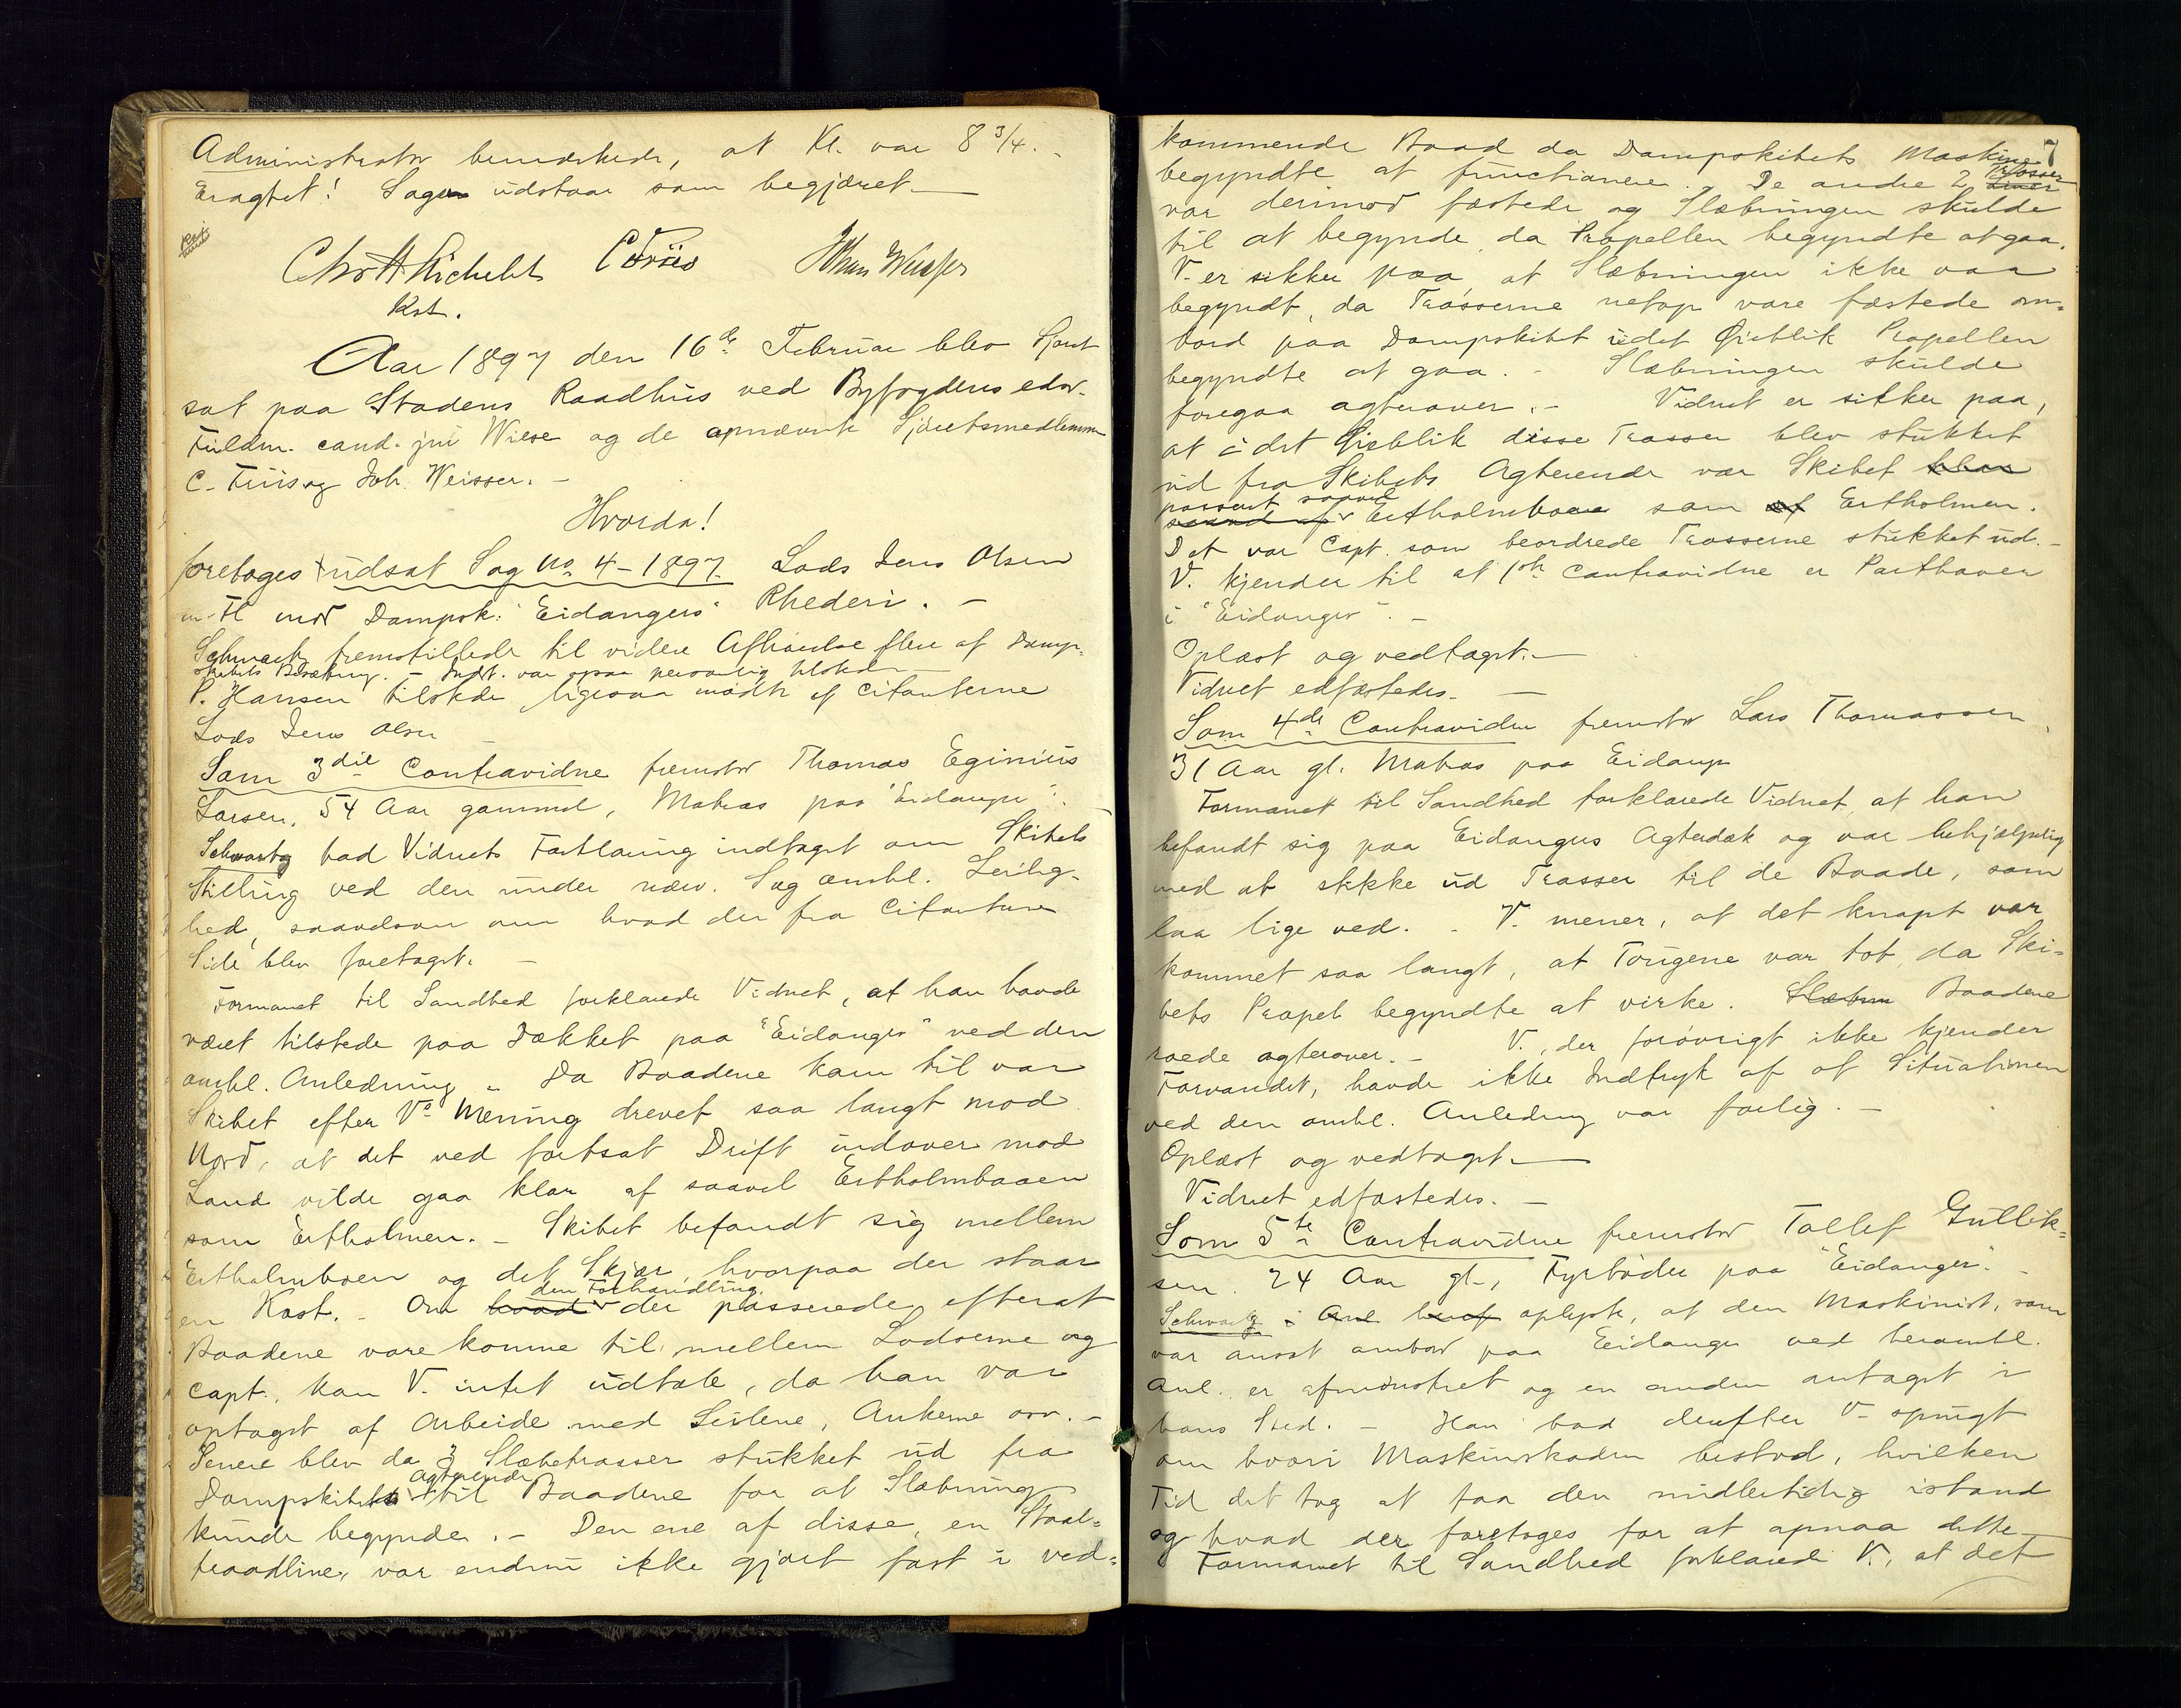 Administrator bemærkede, at Kl. var 8 3/4.-
Eragtet! Sagen udstaar som begjæret.
Chr A Richelt C Friis Johan Weisser
Kst.
Aar 1897 den 16de Februar blev Sjøret
sat paa Stadens Raadhus ved Byfogdens edsv.
Fuldm. cand. jur Wiese og de opnævnte Sjøretsmedlemm
C. Friis og Joh. Weisser. -
Hvorda!
foretoges udsat Sag No 4 - 1897. Lods Jens Olsen
m. Fl mod Dampsk: "Eidangers" Rhederi. -
Schwartz fremstillede til videre Afhørelse flere af Damp-
skibets Besætning. - Indst. var ogsaa personlig tilstede
P. Hansen tilstede ligesaa mødte af Citanterne
Lods Jens Olsen
Som 3die Contravidne fremstod Thomas Eginius
Larsen, 54 Aar gammel, Matros paa "Eidanger".
Schwartz bad Vidnets Forklaring indtaget om Skibets
Stilling ved den under nærv. Sag omhl. Leilig-
hed, saavelsom om hvad der fra Citanternes
Side blev foretaget. -
Formanet til Sandhed forklarede Vidnet, at han havde
været tilstede paa Dækket paa "Eidanger" ved den
omhl. Anledning. - Da Baadene kom til var
Skibet efter Vs Mening drevet saa langt mod
Nord, at det ved fortsat Drift indover mod
Land vilde gaa klar af saavel Ertholmbaaen
som Ertholmen. - Skibet befandt sig mellem
Ertholmboen og det Skjær, hvorpaa der staar
en Kost. - Om hvad den Forhandling der passerede efterat
Baadene vare komne til, mellem Lodserne og
Capt., kan V. intet udtale, da han var
optaget af Arbeide med Seilene, Ankerne osv. -
Senere blev da 3 Slæbetrosser stukket ud fra
Dampskibets Agterende til Baadene for at Slæbning
kunde begynde. - Den ene af disse, en Staal-
traadline, var endnu ikke gjort fast i ved-
7
kommende Baad da Dampskibets Maskine
begyndte at functionere. - De andre 2 Trosser
var derimod fæstede og Slæbningen skulde
til at begynde, da Propellen begyndte at gaa.
V. er sikker paa, at Slæbningen ikke var
begyndt, da Trosserne netop vare fæstede om-
bord paa Dampskibet i det Øieblik Propellen
begyndte at gaa. - Slæbningen skulde
foregaa agterover. - Vidnet er sikker paa,
at i det Øieblik disse Trosser blev stukket
ud fra Skibets Agterende var Skibet klar
passert saavel saavel af Ertholmboen som af Ertholmen.
Det var Capt. som beordrede Trosserne stukket ud. -
V. kjender til at 1ste Contravidne er Parthaver
i "Eidanger". -
Oplæst og vedtaget. -
Vidnet edfæstedes. -
Som 4de Contravidne fremstod Lars Thomassen
31 Aar gl. Matros paa Eidanger
Formanet til Sandhed forklarede Vidnet, at han
befandt sig paa Eidangers Agterdæk og var behjælpelig
med at stikke ud Trosser til de Baade, som
laa lige ved. - V. mener, at det knapt var
kommet saa langt, at Tougene var tot, da Ski-
bets Propel begyndte at virke. Slæbnin Baadene
roede agterover. - V., der forøvrigt ikke kjender
Farvandet, havde ikke Indtryk af at Situationen
ved den omhl. Anledning var farlig. -
Oplæst og vedtaget. -
Vidnet edfæstedes. -
Som 5te Contravidne fremstod Tollef Gullik-
sen 24 Aar gl., Fyrbøder paa "Eidanger". -
Schwartz i Anl heraf oplyste, at den Maskinist, som
var ansat ombord paa Eidanger ved heromhl.
Anl. er afmønstret og en anden antaget i
hans Sted. - Han bad derefter V. spurgt
om hvori Maskinskaden bestod, hvilken
Tid det tog at faa den midlertidig istand
og hvad der foretoges for at opnaa dette. -
Formanet til Sandhed forklarede V., at det